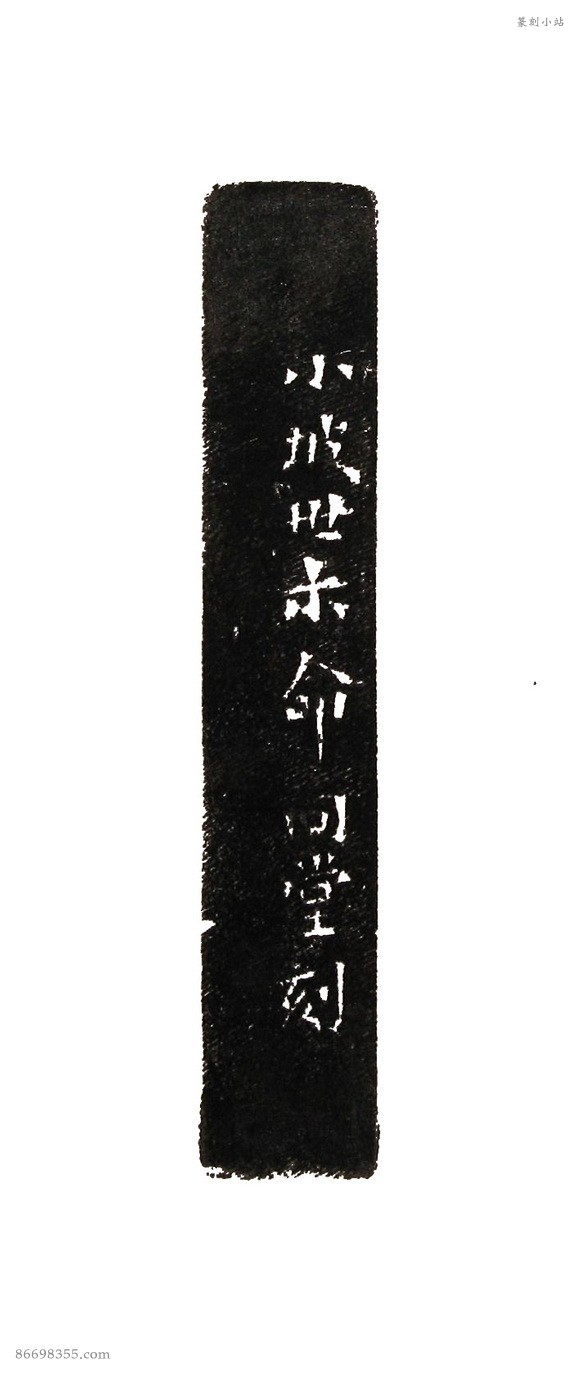 篆刻小站
小坡世尗命同堂刻
86698355.com